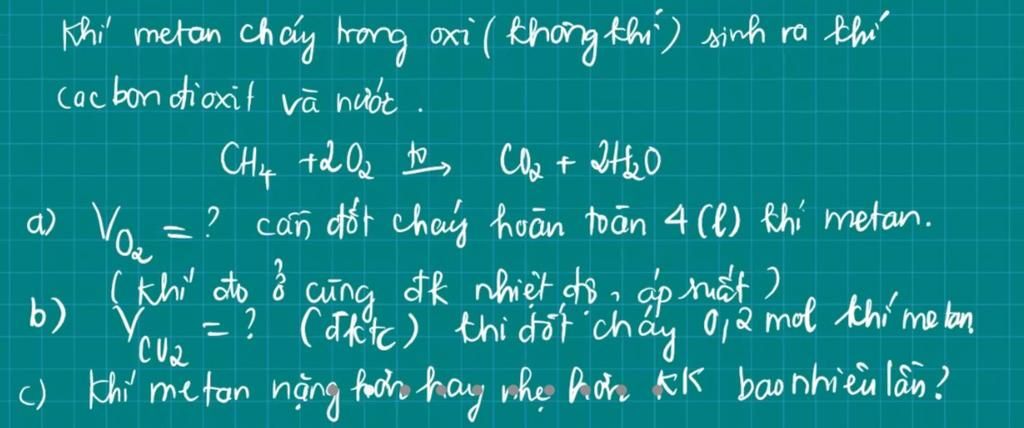 Khí metan cháy trong oxi (không khí) sinh ra khí
cacbon đioxit và nước.
CH₄ + 2O₂ t⁰→ CO₂ + 2H₂O
a) V_O₂ = ? cần đốt cháy hoàn toàn 4 (l) khí metan.
(Khí đo ở cùng đk nhiệt độ, áp suất)
b) V_CO₂ = ? (đktc) khi đốt cháy 0,2 mol khí metan.
c) Khí metan nặng hơn hay nhẹ hơn KK bao nhiêu lần?